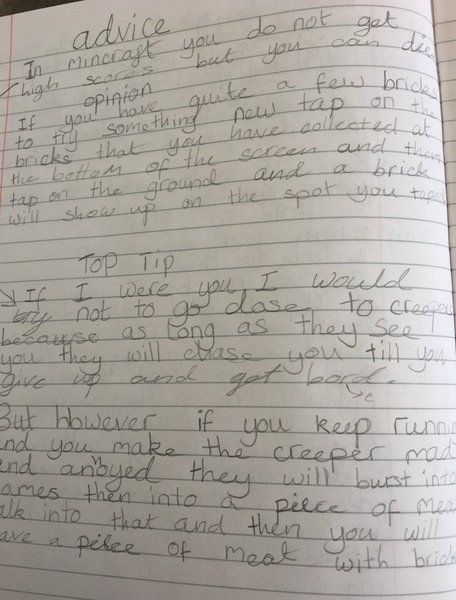 advice
In mincraft you do not get
high scores but you can die
opinion
If you have quite a few bricks
to try something new tap on the
bricks that you have collected at
the bottom of the screen and then
tap on the ground and a brick
will show up on the spot you taped
Top Tip
If I were you I would
try not to go close to creepe
because as long as they see
you they will chase you till you
give up and get bord.
e
But however if you keep runni
and you make the creeper mad
and anoyed they will burst into
ames then into a peice of mea
alk into that and then you will
ave a peice of meat with brick